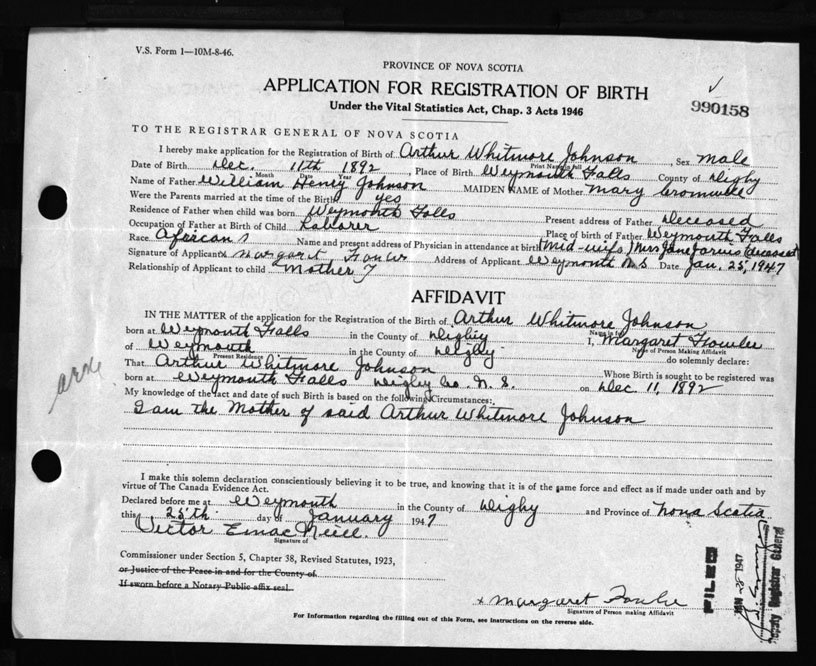 V.S. Form 1—10M-8-46.
PROVINCE OF NOVA SCOTIA
APPLICATION FOR REGISTRATION OF BIRTH
990158
Under the Vital Statistics Act, Chap. 3 Acts 1946
TO THE REGISTRAR GENERAL OF NOVA SCOTIA
I hereby make application for the Registration of Birth of Arthur Whitmore Johnson, Sex male
Print Name in full
Date of Birth Dec. 11th 1892, Place of Birth Weymouth Falls County of Digby
Month Date Year
Name of Father William Henry Johnson MAIDEN NAME of Mother Mary Cromwell
Were the Parents married at the time of the Birth yes
Residence of Father when child was born Weymouth Falls Present address of Father Deceased
Occupation of Father at Birth of Child Laborer Place of birth of Father Weymouth Falls
Race African Name and present address of Physician in attendance at birth (Mid-wife) Mrs Jane (deceased)
Signature of Applicant x Margaret Address of Applicant Weymouth N.S Date Jan. 25, 1947
Relationship of Applicant to child Mother
AFFIDAVIT
IN THE MATTER of the application for the Registration of the Birth of Arthur Whitmore Johnson
Name in full
born at Weymouth Falls in the County of Digby I, Margaret Fowler
Name of Person Making Affidavit
of Weymouth in the County of Digby do solemnly declare:
Present Residence
That Arthur Whitmore Johnson Whose Birth is sought to be registered was
born at Weymouth Falls Digby Co. N. S. on Dec 11, 1892
My knowledge of the fact and date of such Birth is based on the following Circumstances:
I am the Mother of said Arthur Whitmore Johnson
I make this solemn declaration conscientiously believing it to be true, and knowing that it is of the same force and effect as if made under oath and by
virtue of The Canada Evidence Act.
Declared before me at Weymouth in the County of Digby and Province of Nova Scotia
this 25th day of January 1947
Victor
Signature of
Commissioner under Section 5, Chapter 38, Revised Statutes, 1923,
or Justice of the Peace in and for the County of
If sworn before a Notary Public affix seal
x Margaret Fowler
Signature of Person making Affidavit
For Information regarding the filling out of this Form, see instructions on the reverse side.
FILED
JAN 1947
Deputy Registrar General